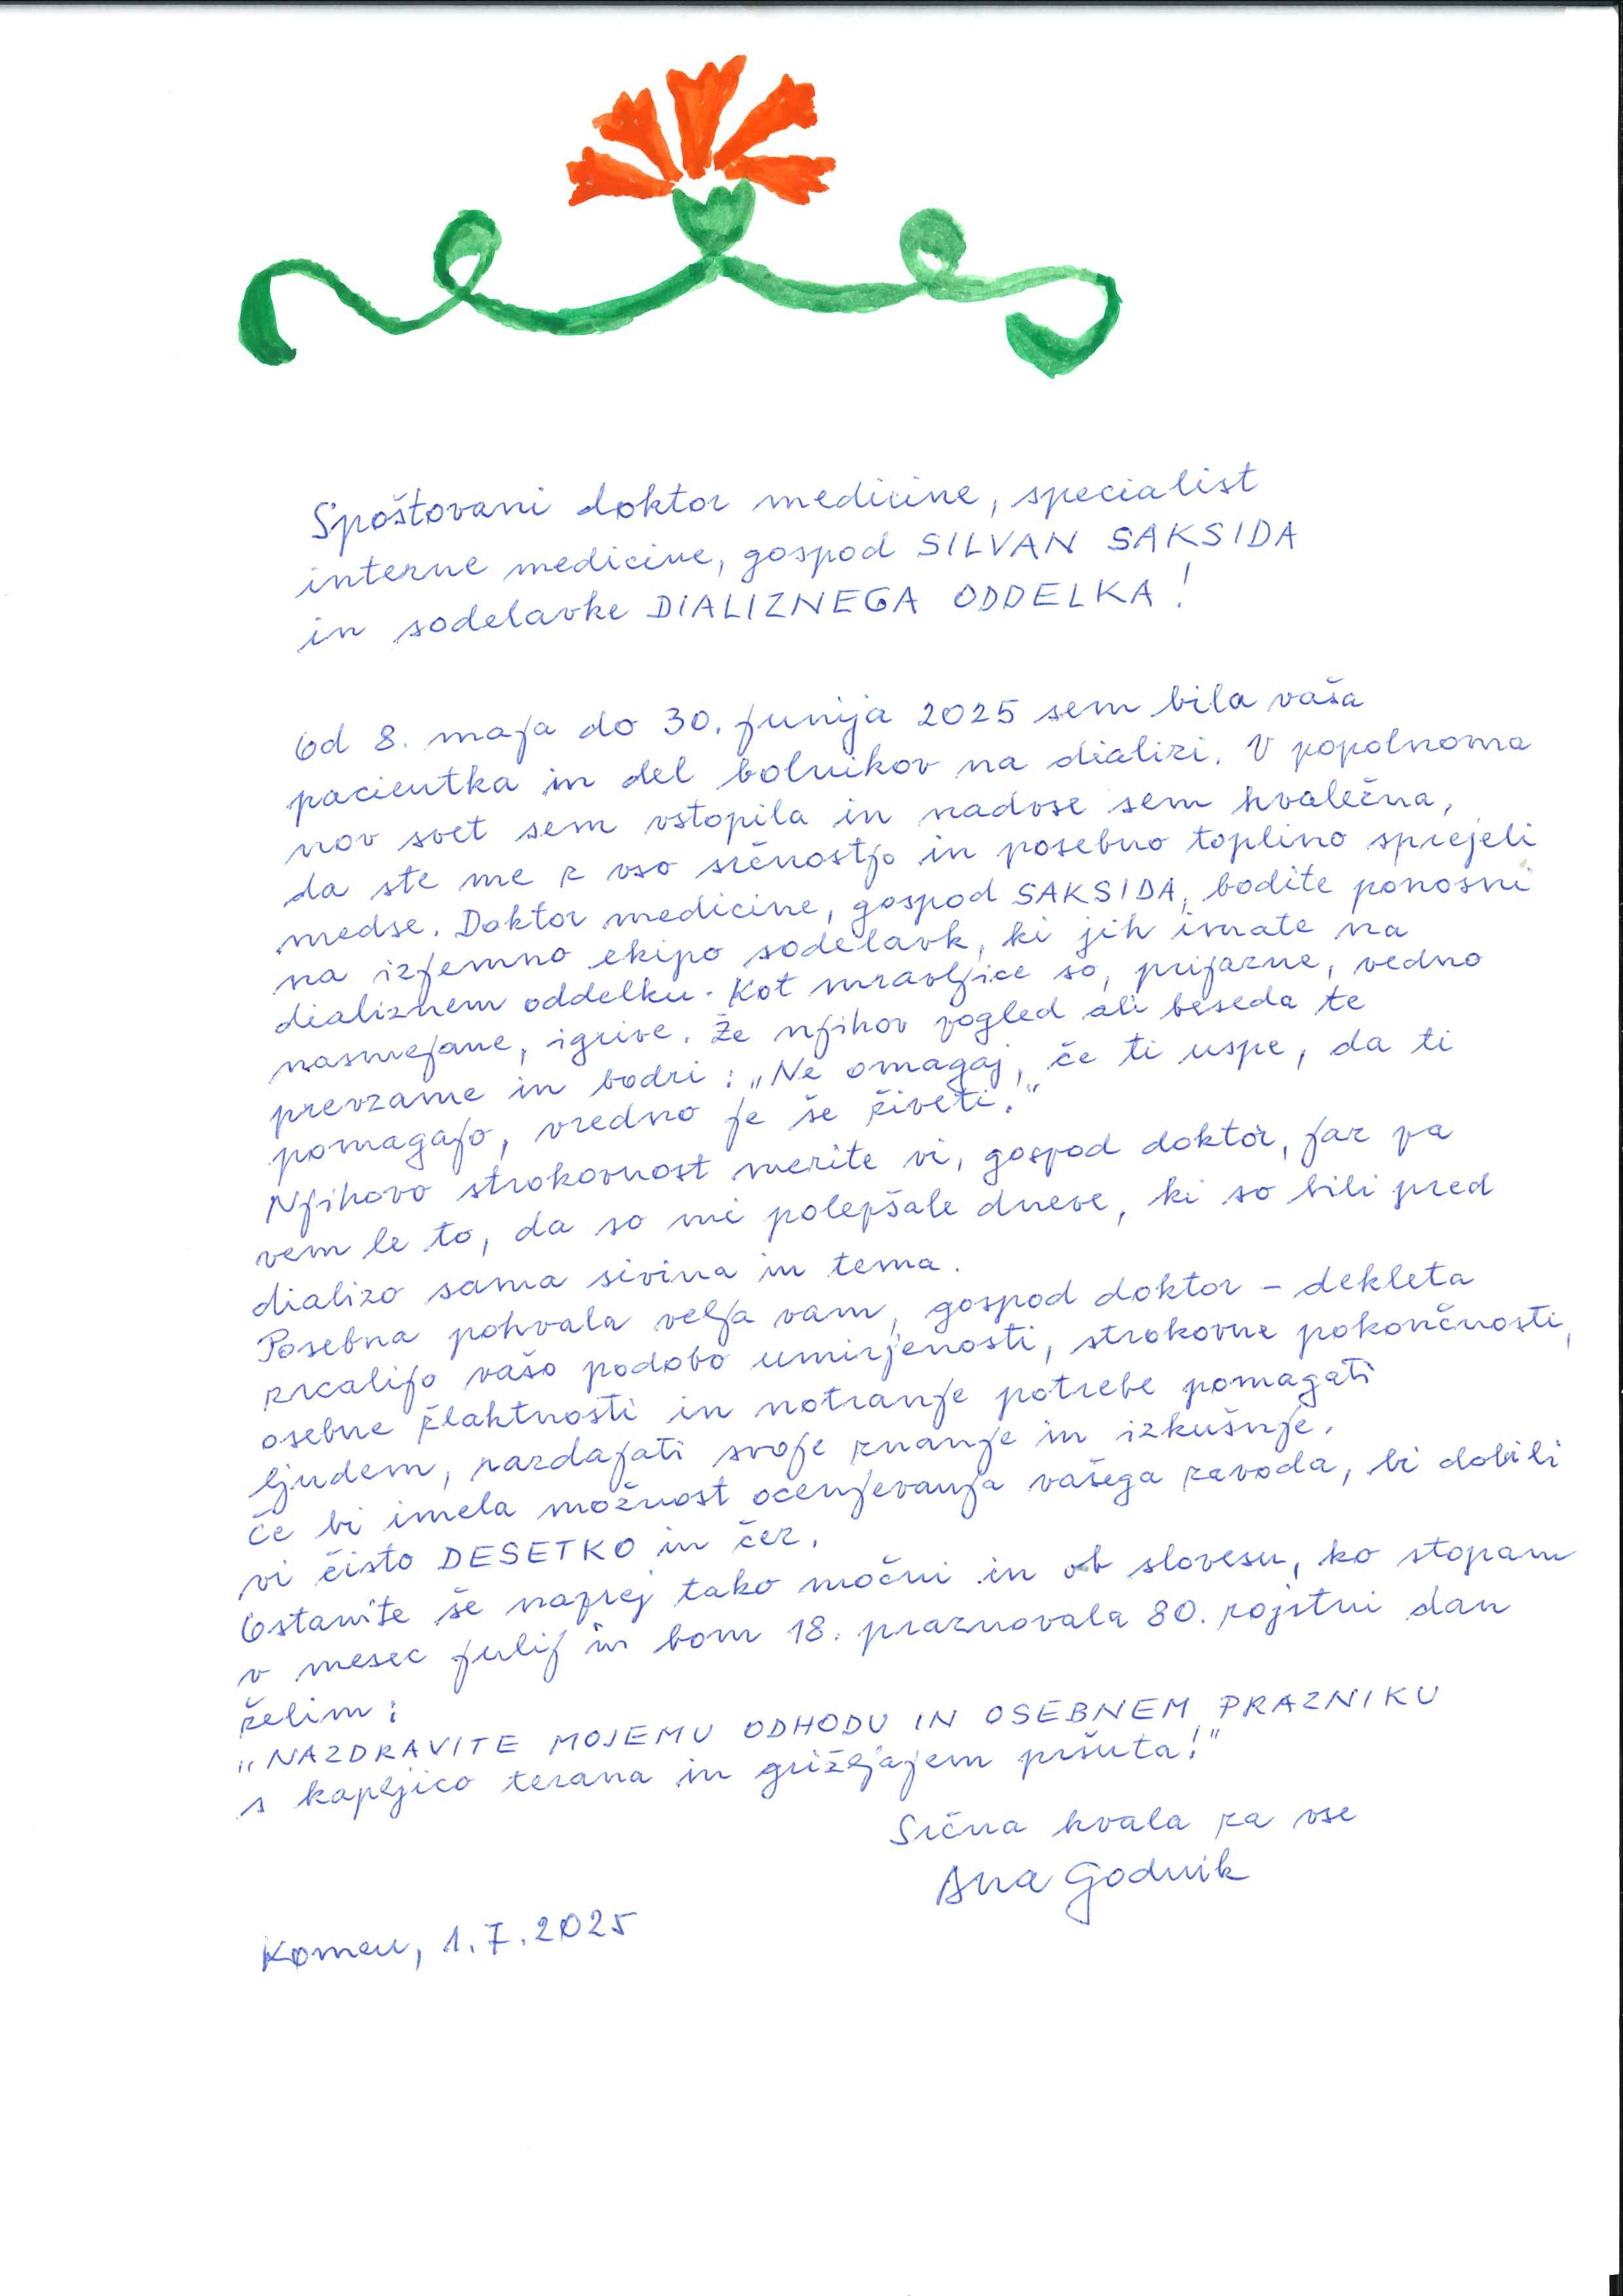 Spoštovani doktor medicine, specialist
interne medicine, gospod SILVAN SAKSIDA
in sodelavke DIALIZNEGA ODDELKA!
Od 8. maja do 30. junija 2025 sem bila vaša
pacientka in del bolnikov na dializi. V popolnoma
nov svet sem vstopila in nadvse sem hvaležna,
da ste me z vso srčnostjo in posebno toplino sprejeli
medse. Doktor medicine, gospod SAKSIDA, bodite ponosni
na izjemno ekipo sodelavk, ki jih imate na
dializnem oddelku. Kot mravljice so, prijazne, vedno
nasmejane, igrive. Že njihov pogled ali beseda te
prevzame in bodri: „Ne omagaj, če ti uspe, da ti
pomagajo, vredno je še živeti.“
Njihovo strokovnost merite vi, gospod doktor, jaz pa
vem le to, da so mi polepšale dneve, ki so bili pred
dializo sama sivina in tema.
Posebna pohvala velja vam, gospod doktor – dekleta
zrcalijo vašo podobo umirjenosti, strokovne pokončnosti,
osebne žlahtnosti in notranje potrebe pomagati
ljudem, razdajati svoje znanje in izkušnje.
Če bi imela možnost ocenjevanja vašega zavoda, bi dobili
vi čisto DESETKO in čez.
Ostanite še naprej tako močni in ob slovesu, ko stopam
v mesec julij in bom 18. praznovala 80. rojstni dan
želim:
„NAZDRAVITE MOJEMU ODHODU IN OSEBNEM PRAZNIKU
s kapljico terana in grižljajem pršuta!“
Srčna hvala za vse
Ana Godnik
Komen, 1.7.2025